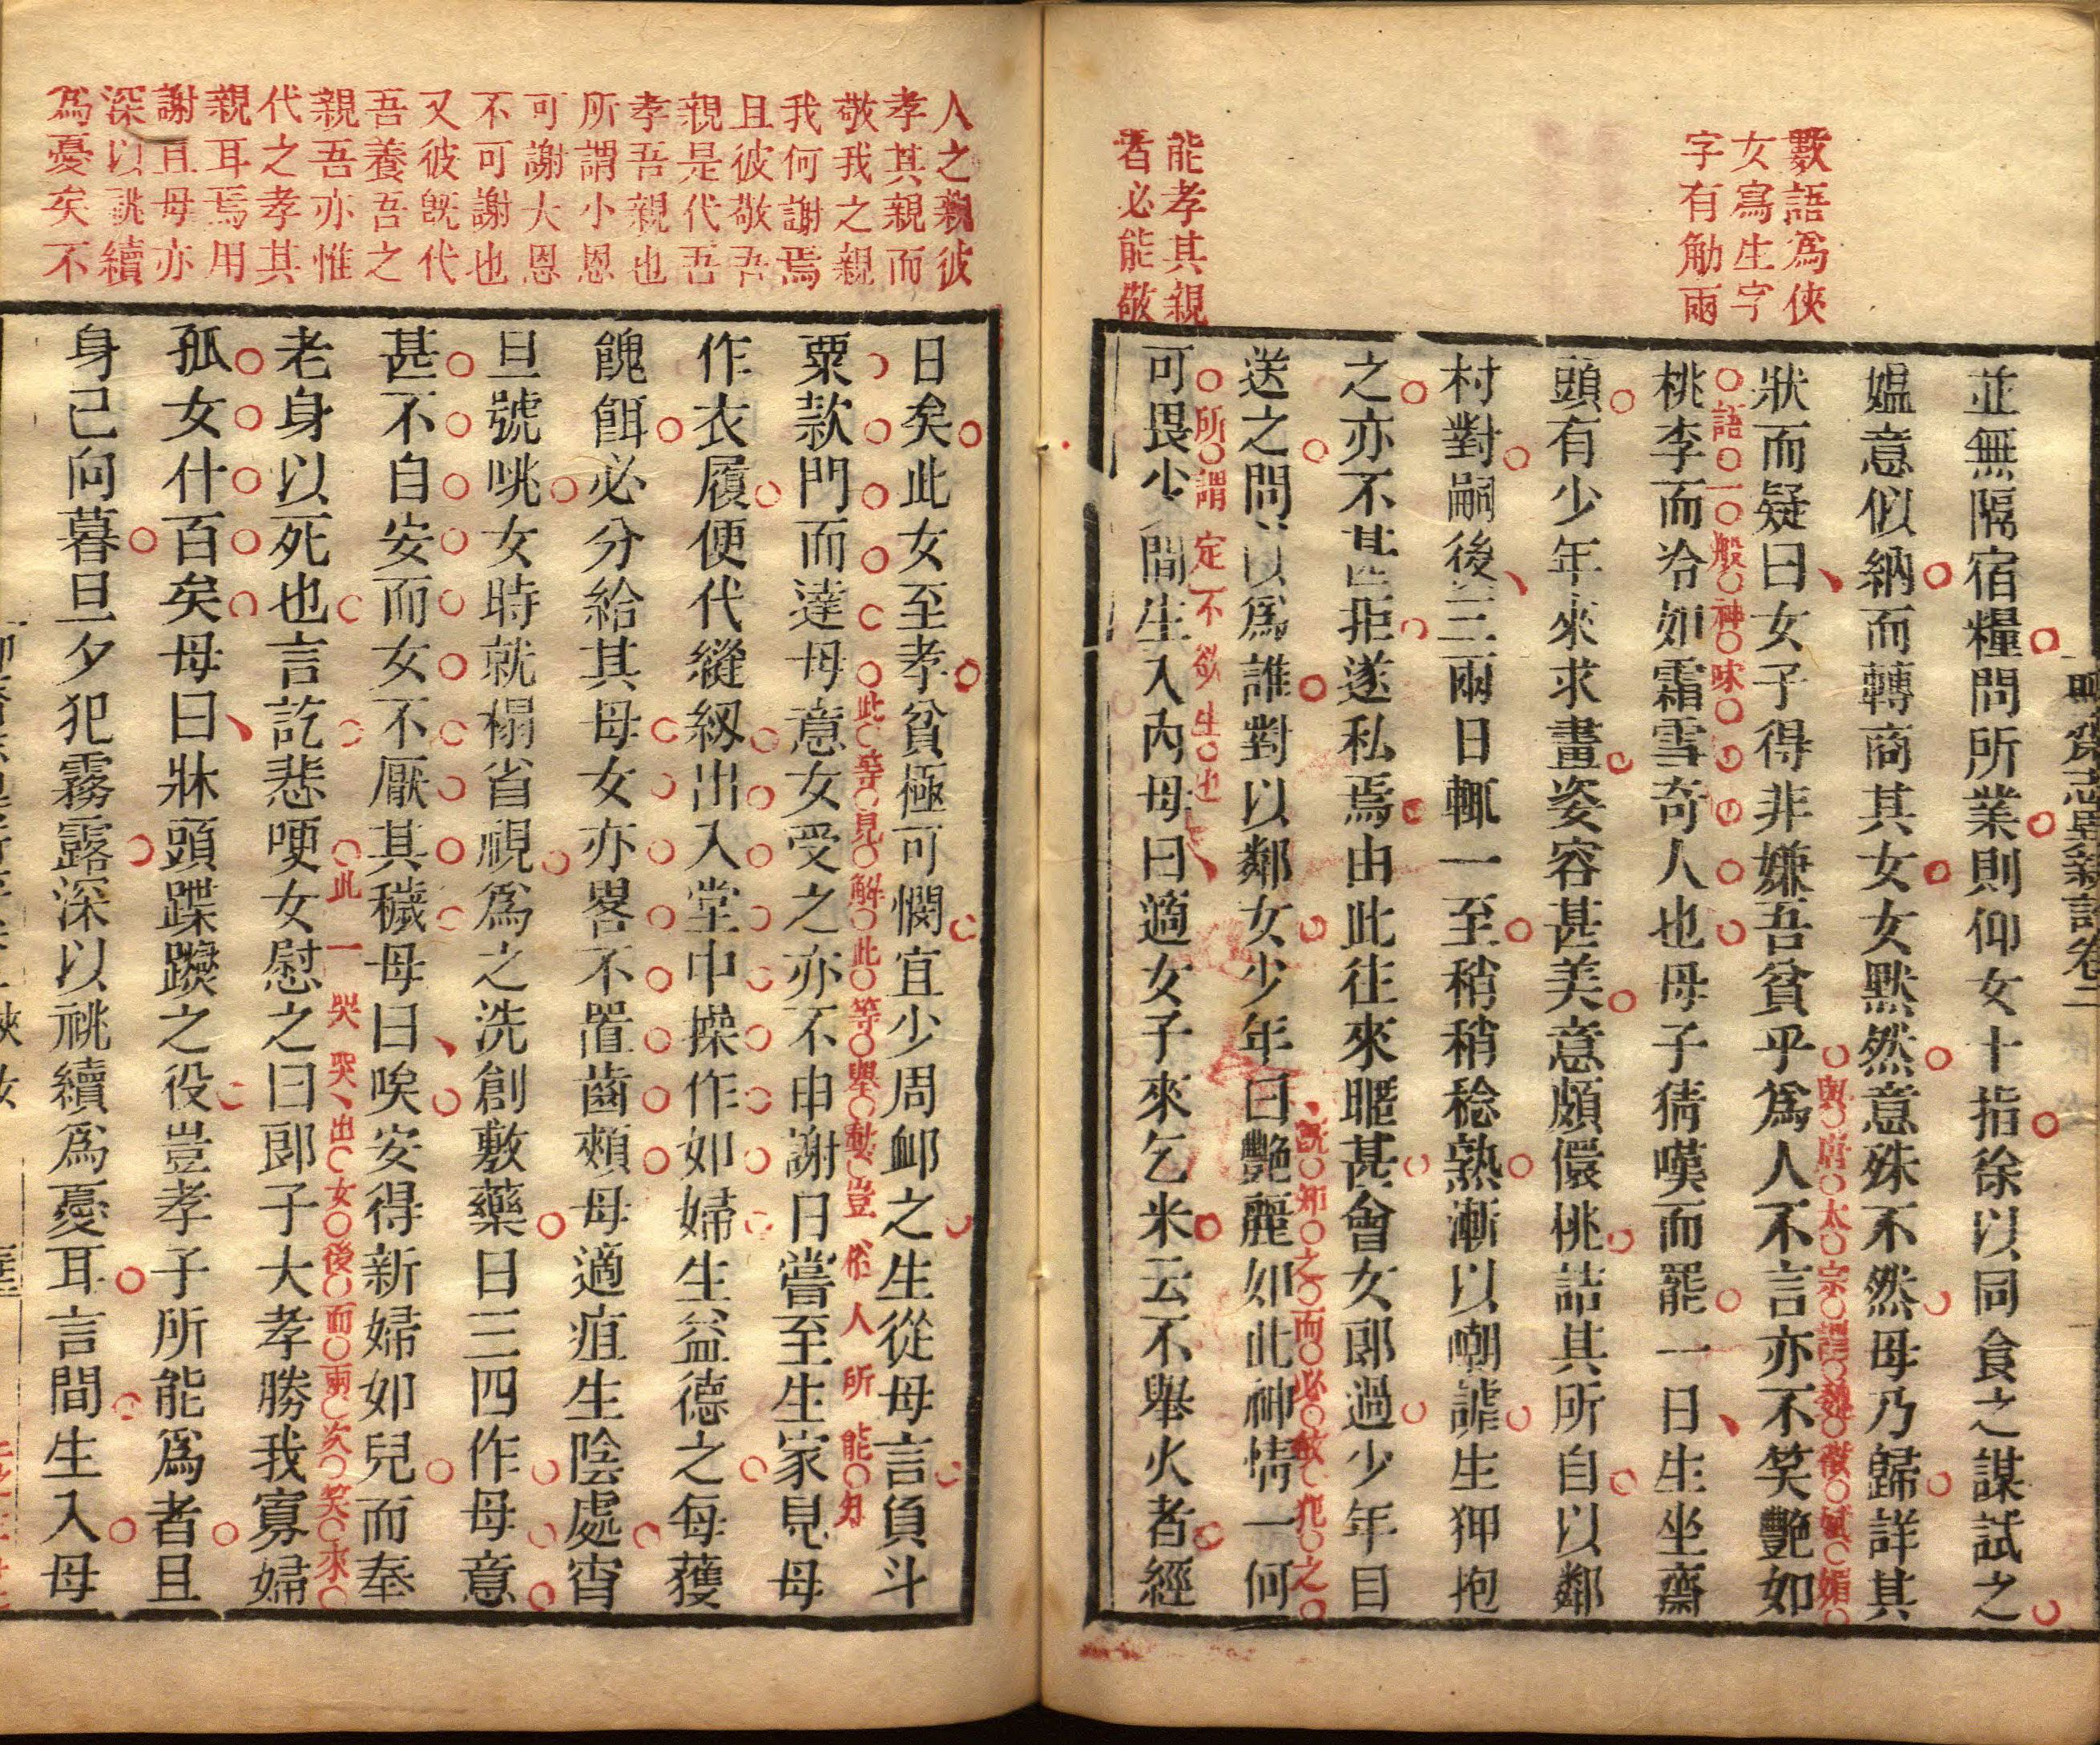 數語爲俠
女寫生字
字有觔兩
能孝其親
者必能敬
並無隔宿糧問所業則仰女十指徐以同食之謀試之
媼意似納而轉商其女女默然意殊不然母乃歸詳其
與唐太宗謂魏徵嫵媚
狀而疑曰女子得非嫌吾貧乎爲人不言亦不笑艷如
語一般神味
桃李而冷如霜雪奇人也母子猜嘆而罷一日生坐齋
頭有少年來求畫姿容甚美意頗儇桃詰其所自以鄰
村對嗣後三兩日輒一至稍稍稔熟漸以嘲謔生狎抱
之亦不甚拒遂私焉由此往來暱甚會女郎過少年目
既知之而必故犯之
送之問以爲誰對以鄰女少年曰艷麗如此神情一何
所謂定不欲生也
可畏少間生入內母曰適女子來乞米云不舉火者經
人之親彼
孝其親而
敬我之親
我何謝焉
且彼敬吾
親是代吾
孝吾親也
所謂小恩
可謝大恩
不可謝也
又彼旣代
吾養吾之
親吾亦惟
代之孝其
親耳焉用
謝且母亦
深以祧續
爲憂矣不
日矣此女至孝貧極可憫宜少周衈之生從母言負斗
此等見解此等舉動豈俗人所能
粟款門而達母意女受之亦不申謝日嘗至生家見母
作衣履便代縫紉出入堂中操作如婦生益德之每獲
餽餌必分給其母女亦畧不置齒頰母適疽生陰處宵
旦號咷女時就榻省視爲之洗創敷藥日三四作母意
甚不自安而女不厭其穢母曰唉安得新婦如兒而奉
此一哭哭出女後而兩次笑來
老身以死也言訖悲哽女慰之曰郎子大孝勝我寡婦
孤女什百矣母曰牀頭蹀躞之役豈孝子所能爲者且
身已向暮旦夕犯霧露深以祧續爲憂耳言間生入母